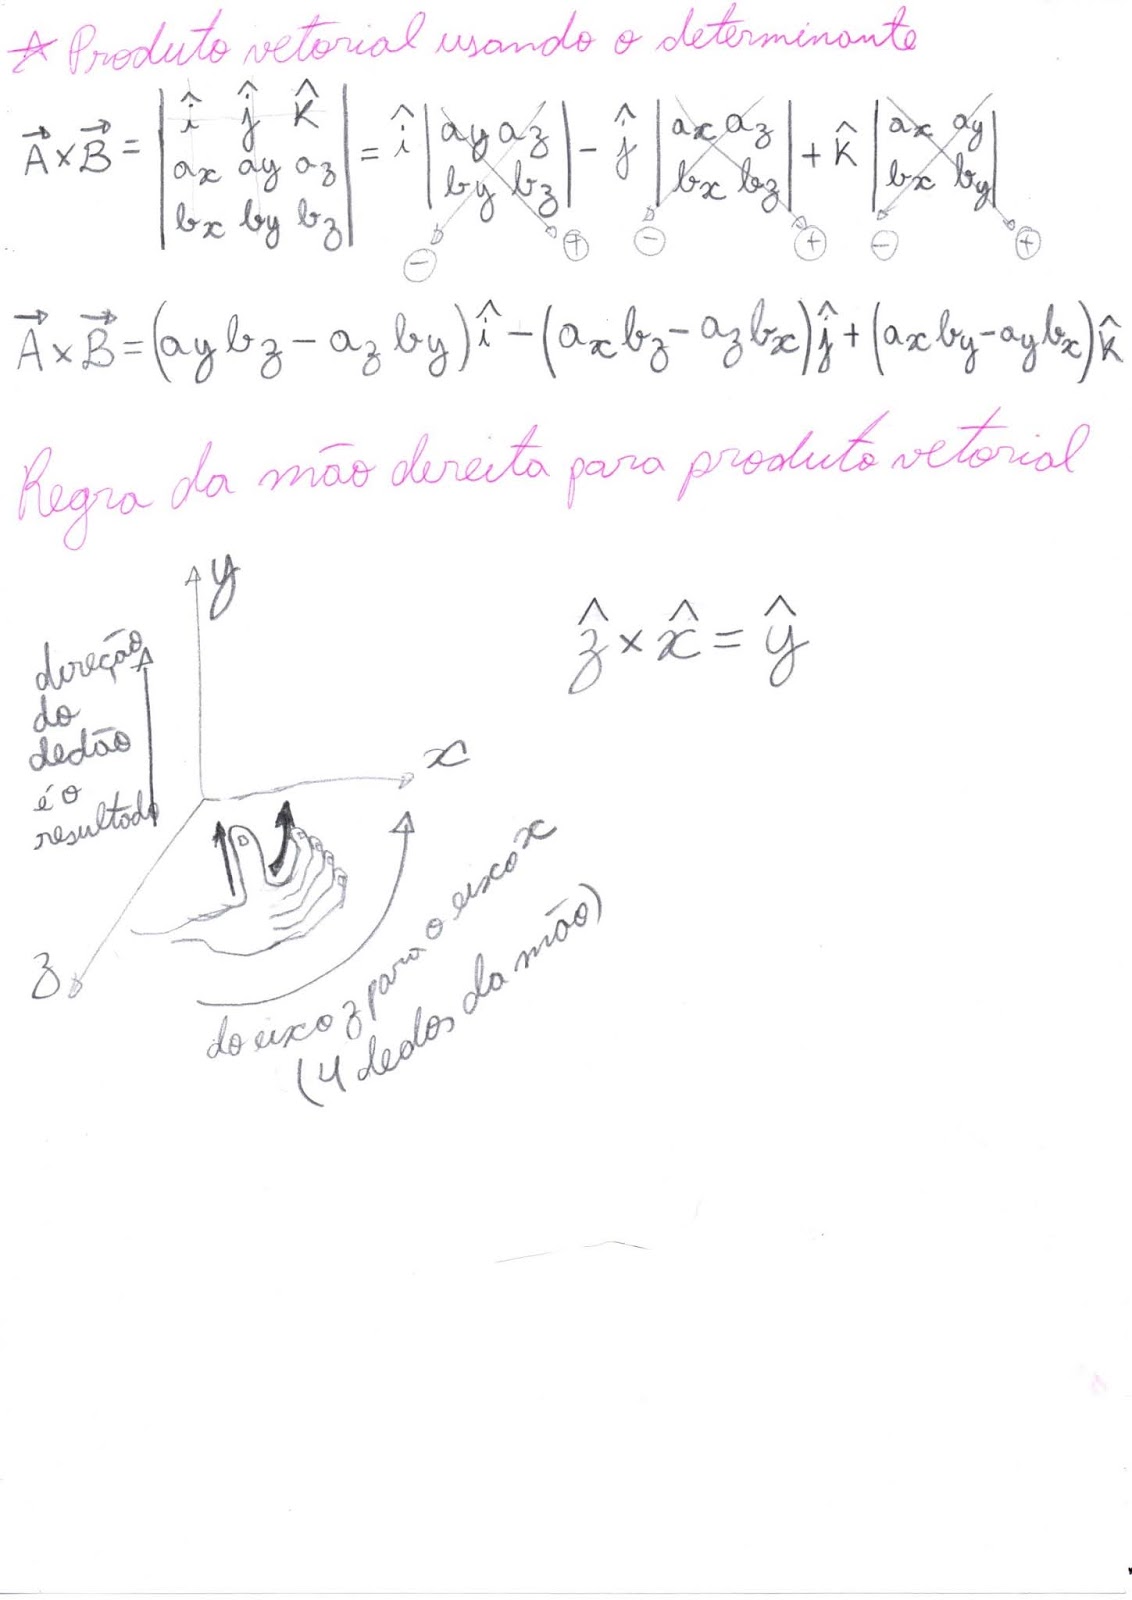 ☆ Produto vetorial usando o determinante
A⃗ × B⃗ = | î ĵ k̂ | = î | ay az | - ĵ | ax az | + k̂ | ax ay |
ax ay az
by bz
bx bz
bx by
bx by bz
- + - + - +
A⃗ × B⃗ = (ay bz - az by) î - (ax bz - az bx) ĵ + (ax by - ay bx) k̂
Regra da mão direita para produto vetorial
y
ẑ × x̂ = ŷ
direção
do
dedão
é o
resultado
x
z
do eixo z para o eixo x
(4 dedos da mão)